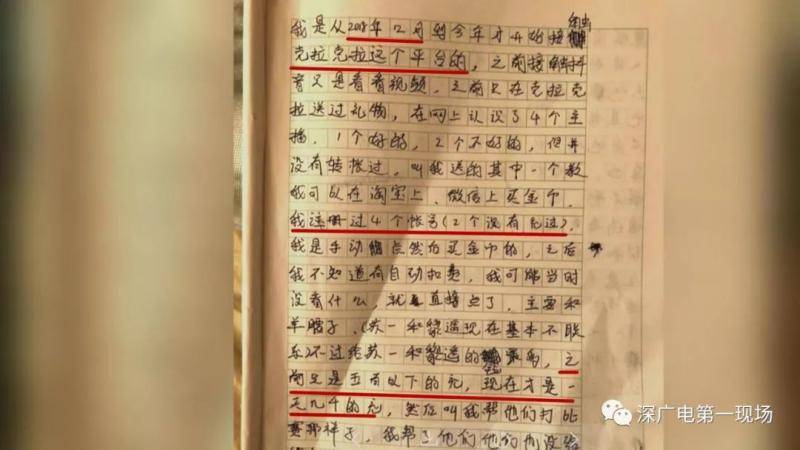 我是从2019年2月到今年才开始接触
克拉克拉这个平台的，之前接触抖
音只是看看视频，之前只在克拉克
拉送过礼物，在网上认识了4个主
播，1个好的，2个不好的，但并
没有转帐过，叫我送的其中一个教
我可以在淘宝上、微信上买金币，
我注册过4个帐号(2个没有充过)，
我是手动 点然后买金币的，之后
我不知道有自动扣费，我可能当时
没看什么，就 直接点了，主要和
羊腰子、(苏一和黎遥现在基本不联
系)不过给苏一和黎遥的 多，之
前只是五百以下的充，现在才是一
充几千的充，然后叫我帮他们打比
赛那样子，我帮了他们他们也没给
深广电第一现场